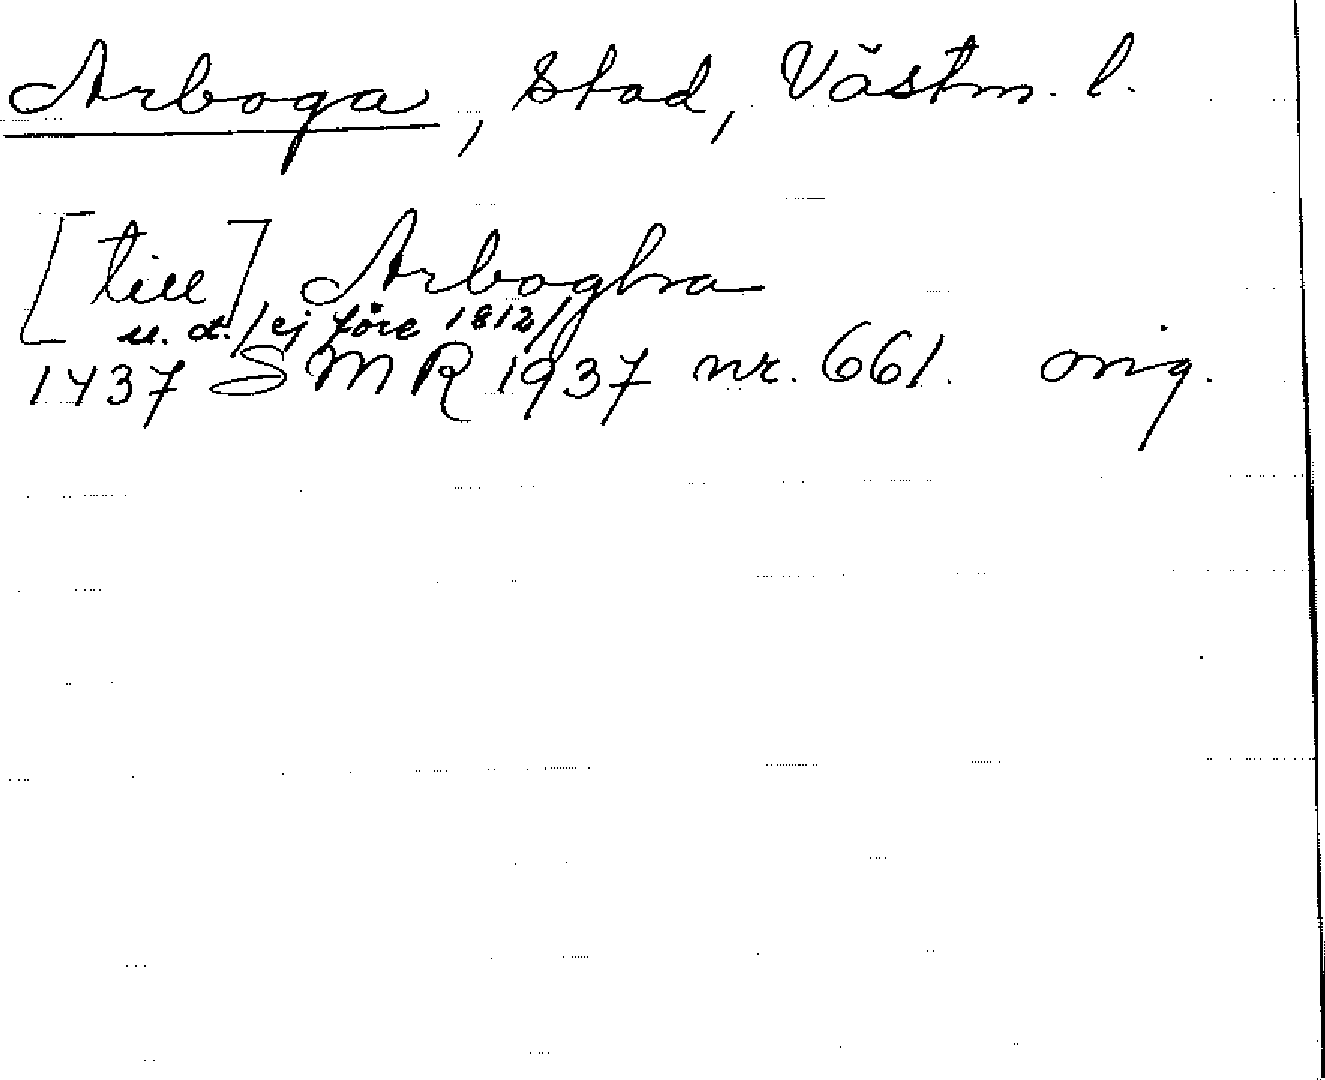 Arboga, Stad, Västm. l.
[till] Arboghra
u. d. / ej före 1812/
1437 SMR 1937 nr. 661. orig.